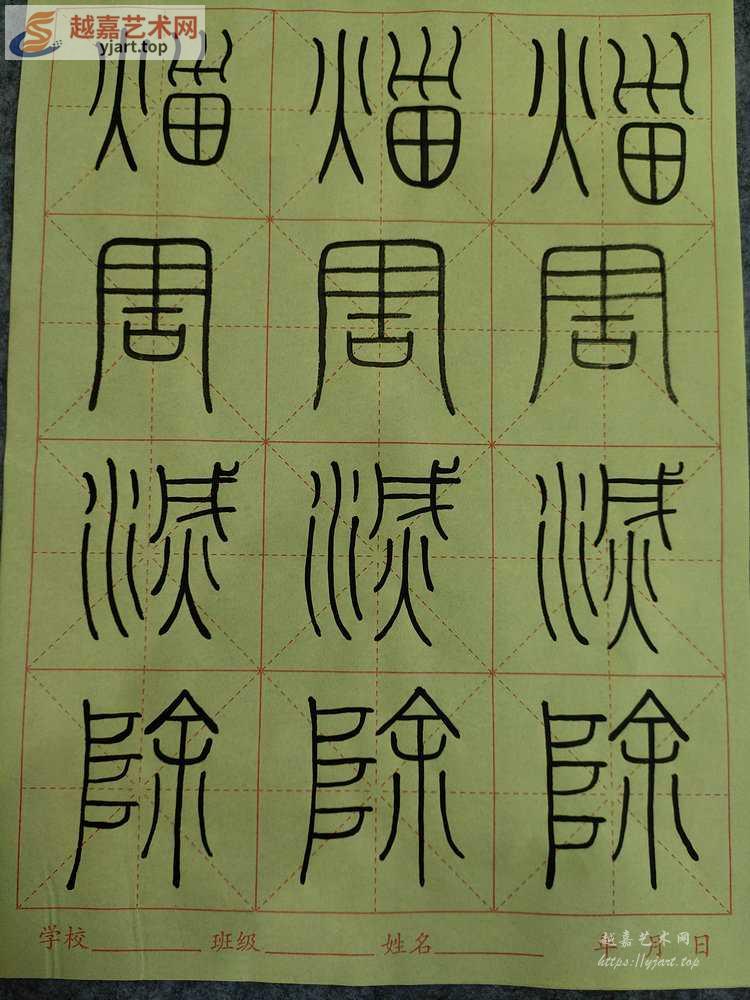 越嘉艺术网
yjart.top
災 災 災
害 害 害
滅 滅 滅
除 除 除
学校 班级 姓名 年 月 日
越嘉艺术网
https://yjart.top